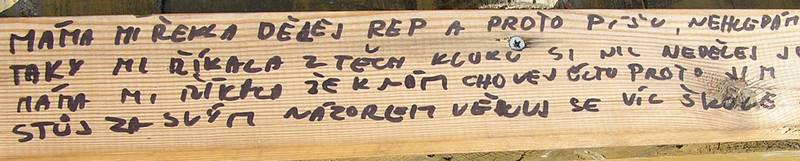 MÁMA MI ŘEKLA DĚLEJ REP A PROTO PÍŠU, NEHLEDÁM
TAKY MI ŘÍKALA Z TĚCH KLUKŮ SI NIC NEDĚLEJ
MÁMA MI ŘÍKALA ŽE K NÁM CHOVEJ ÚCTU PROTO
STŮJ ZA SVÝM NÁZOREM VĚNUJ SE VÍC ŠKOLE